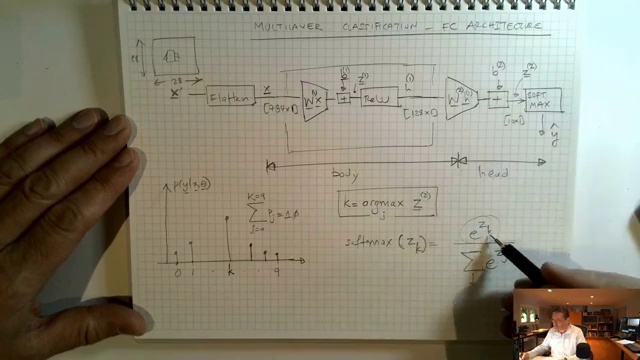 MULTILAYER CLASSIFICATION - FC ARCHITECTURE
28
28
x
Flatten
x
[784x1]
W⁽¹⁾x
b⁽¹⁾
+
z⁽¹⁾
ReLU
h⁽¹⁾
[128x1]
W⁽²⁾h⁽¹⁾
b⁽²⁾
+
z⁽²⁾
[10x1]
SOFT
MAX
ŷ
body
head
p(y|x,θ)
K=9
Σ Pj = 1.0
j=0
0 1 . k 9
k = argmax z⁽²⁾
j
softmax (zk) =
e^zk
Σ e